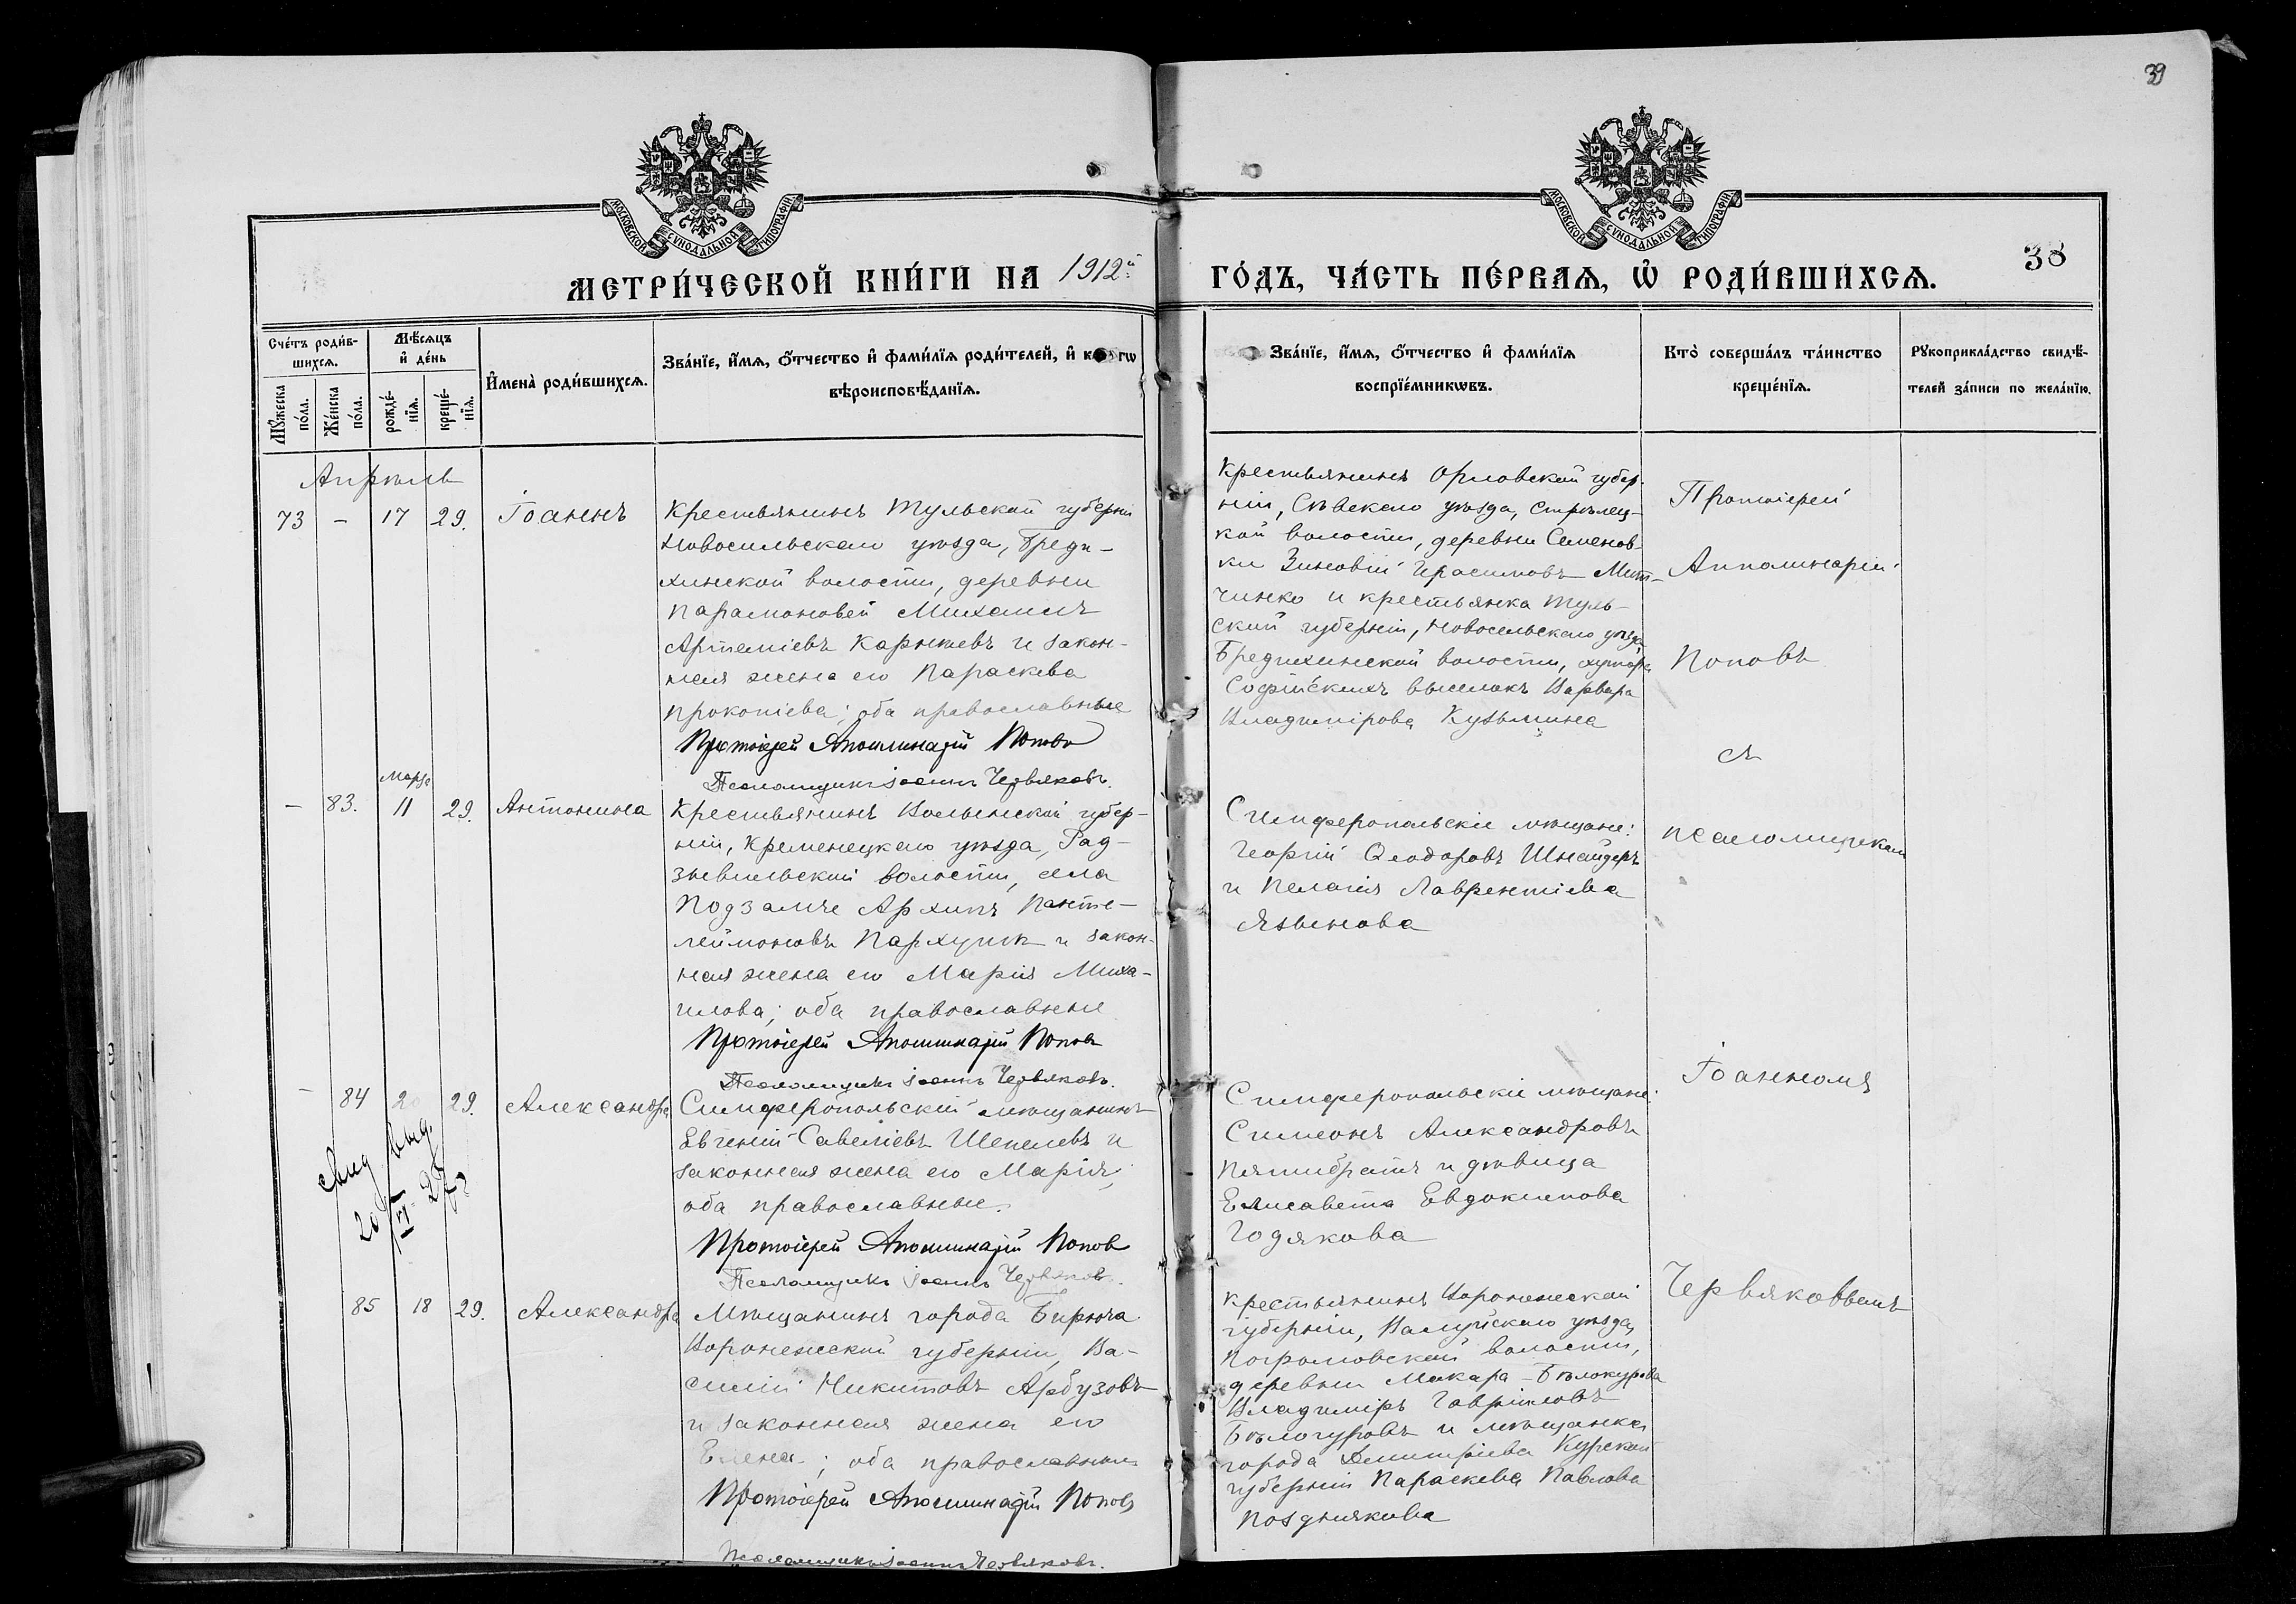 39
МОСКОВСКОЙ СѴНОДАЛЬНОЙ ТИПОГРАФІИ
МОСКОВСКОЙ СѴНОДАЛЬНОЙ ТИПОГРАФІИ
МЕТРИ́ЧЕСКОЙ КНИ́ГИ НА 1912й ГО́ДЪ, ЧА́СТЬ ПЕ́РВАѦ, Ѡ҆ РОДИ́ВШИХСѦ.
38
Сче́тъ роди́в-
шихсѧ.
Мꙋ́жеска
по́ла.
Же́нска
по́ла.
Мѣ́сѧцъ
и҆ де́нь
рожде́-
нїѧ.
креще́-
нїѧ.
И҆мена̀ роди́вшихсѧ.
Зва́нїе, и҆́мѧ, ѻ҆́тчество и҆ фами́лїѧ роди́телей, и҆ к гѡ
вѣроисповѣ́данїѧ.
Зва́нїе, и҆́мѧ, ѻ҆́тчество и҆ фами́лїѧ
воспрїе́мникѡвъ.
Кто̀ соверша́лъ та́инство
креще́нїѧ.
Рꙋкоприкла́дство свидѣ́-
телей за́писи по жела́нїю.
Апрѣль
73 – 17 29. Іоаннъ
Крестьянинъ Тульской губерніи
Новосильскаго уѣзда, Бреди-
хинской волости, деревни
Парамоновой Михаилъ
Артеміевъ Карнѣевъ и закон-
ная жена его Параскева
Прокопіева; оба православные
Протоіерей Аполлинарій Поповъ
Псаломщикъ Іоаннъ Червяковъ.
Крестьянинъ Орловской губер-
ніи, Сѣвскаго уѣзда, Стрѣлец-
кой волости, деревни Семенов-
ки Зиновій Герасимовъ Мит-
чинко и крестьянка Туль-
ской губерніи, Новосельскаго уѣзда,
Бредихинской волости, хутора
Софійскихъ выселокъ Варвара
Владимірова Кузьмина
Протоіерей
Апполинарій
Поповъ
съ
псаломщикомъ
Іоанномъ
Червяковвымъ
– 83. Марта 11 29. Антонина
Крестьянинъ Волынской губер-
ніи, Кременецкаго уѣзда, Рад-
зивильской волости, села
Подзамче Архипъ Панте-
леймоновъ Пархукъ и закон-
ная жена его Марія Миха-
илова; оба православные
Протоіерей Аполлинарій Поповъ
Псаломщикъ Іоаннъ Червяковъ.
Симферопольскіе мѣщане:
Георгій Ѳеодоровъ Шнайдеръ
и Пелагія Лаврентіева
Язьинова
– 84 20 29. Александра
20/VI 27 г
Симферопольскій мѣщанинъ
Евгеній Савеліевъ Шепелевъ и
законная жена его Марія;
оба православные.
Протоіерей Аполлинарій Поповъ
Псаломщикъ Іоаннъ Червяковъ.
Симферопольскіе мѣщане:
Симеонъ Александровъ
Пятибратъ и дѣвица
Елисавета Евдокимова
Годякова
85 18 29. Александра
Мѣщанинъ города Бирюча
Воронежской губерніи, Ва-
силій Никитовъ Арбузовъ
и законная жена его
Елена; оба православные
Протоіерей Аполлинарій Поповъ
Псаломщикъ Іоаннъ Червяковъ.
Крестьянинъ Воронежской
губерніи, Валуйскаго уѣзда,
Погромовской волости,
деревни Макара-Бѣлокурова
Владиміръ Гавріиловъ
Бѣлогуровъ и мѣщанка
города Димитріева Курской
губерніи Параскева Павлова
Позднякова